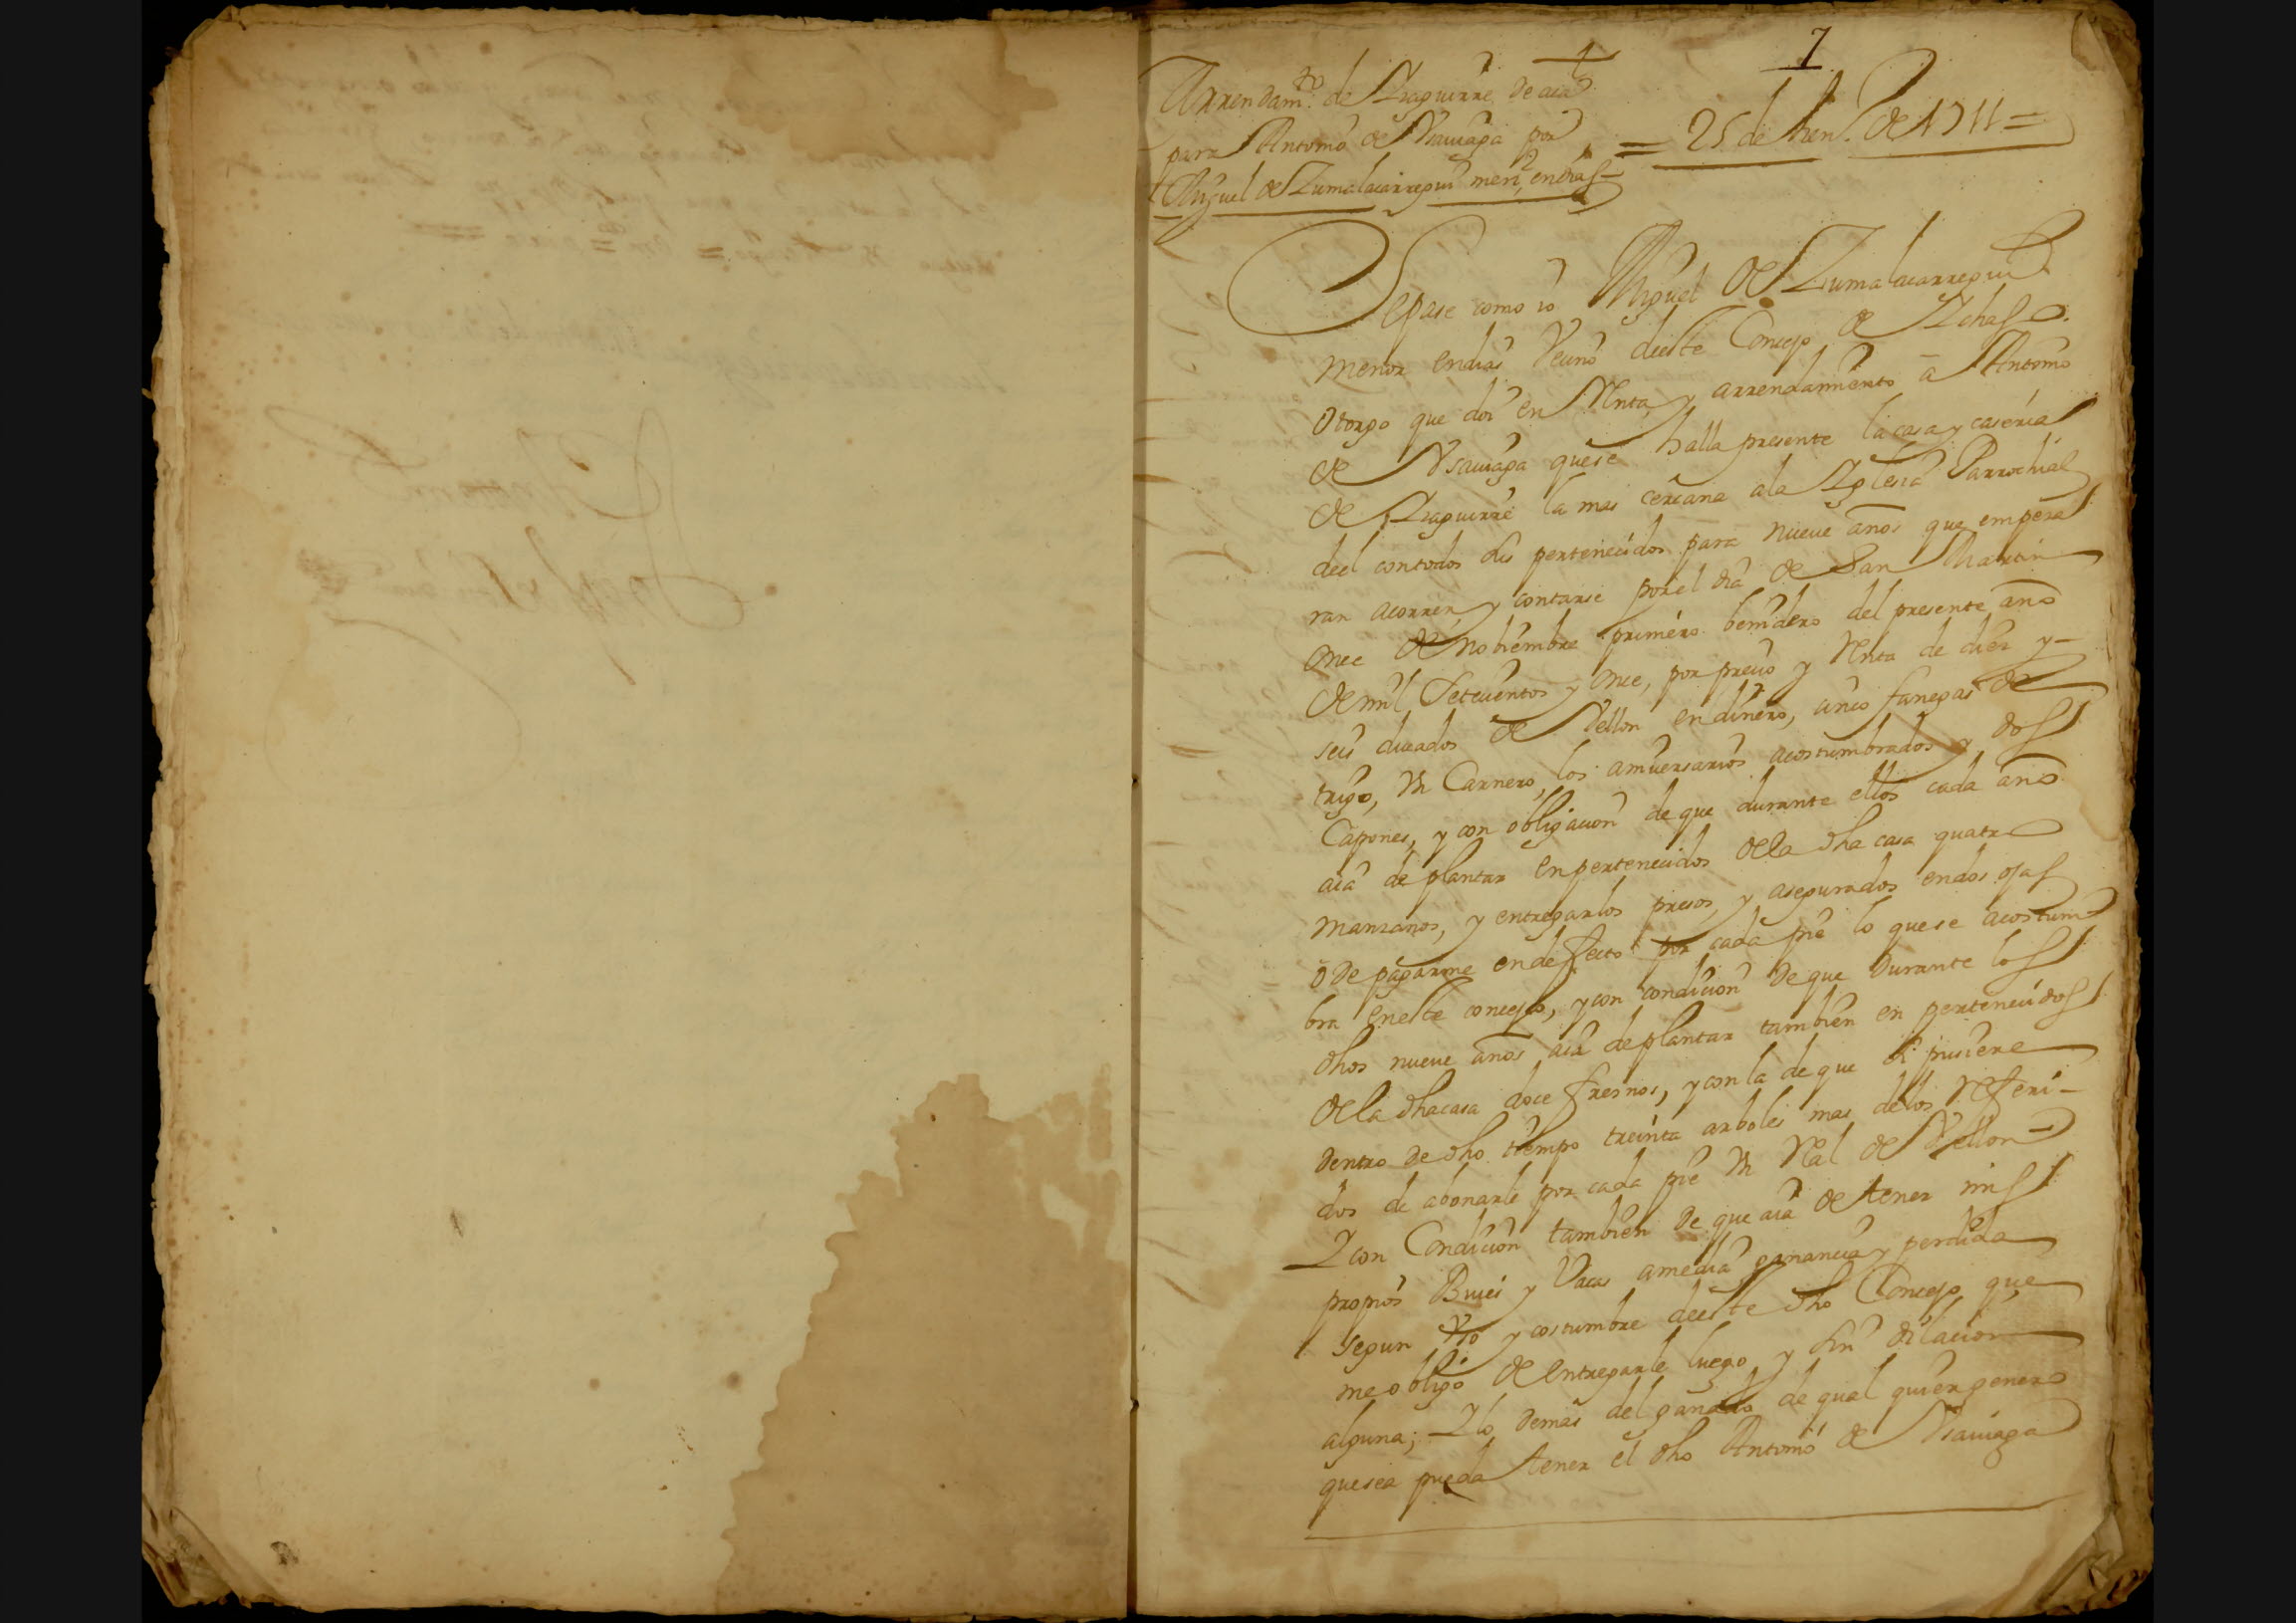 7
Arrendamto. de Izaguirre de aia
para Antonio de Usauiaga por
Miguel de Zumalacarregui menr. en dias
= 25 de hen.o de 1711 =
Sepase como io Miguel de Zumalacarregui
menor en dias Vecino de este Concejo de Ichaso
otorgo que doi en Renta, y arrendamiento a Antonio
de Usauiaga que se halla presente la casa y caseria
de Izaguirre la mas cercana a la Iglesia Parrochial
del con todos sus pertenecidos para nueue años que empeza
ran a correr, y contarse por el dia de San Martin
once de nobiembre primero benidero del presente año
de mil Setecientos y once, por precio y Renta de diez y
seis ducados de Vellon en dinero, cinco fanegas de
trigo, Un Carnero, los aniuersarios acostumbrados y dos
Capones, y con obligacion de que durante ellos cada año
aia de plantar en pertenecidos de la dha casa quatro
manzanos, y entregarlos presos, y asegurados en dos ojas
o de pagarme en defecto por cada pie lo que se acostum
bra en este concejo, y con condicion de que Durante los
dhos nueue años aia de plantar tambien en pertenecidos
de la dha casa doce fresnos, y con la de que si pusiere
dentro de dho tiempo treinta arboles mas de los referi-
dos de abonarle por cada pie Un Real de Vellon
Y con Condicion tambien de que aia de tener mis
propios Buies y Vacas a media ganancia y perdida
segun Uso y costumbre de este dho Concejo que
me obligo de entregarle luego y sin dilacion
alguna; Y lo demas del ganado de qual quier genero
que sea pueda tener el dho Antonio de Usauiaga